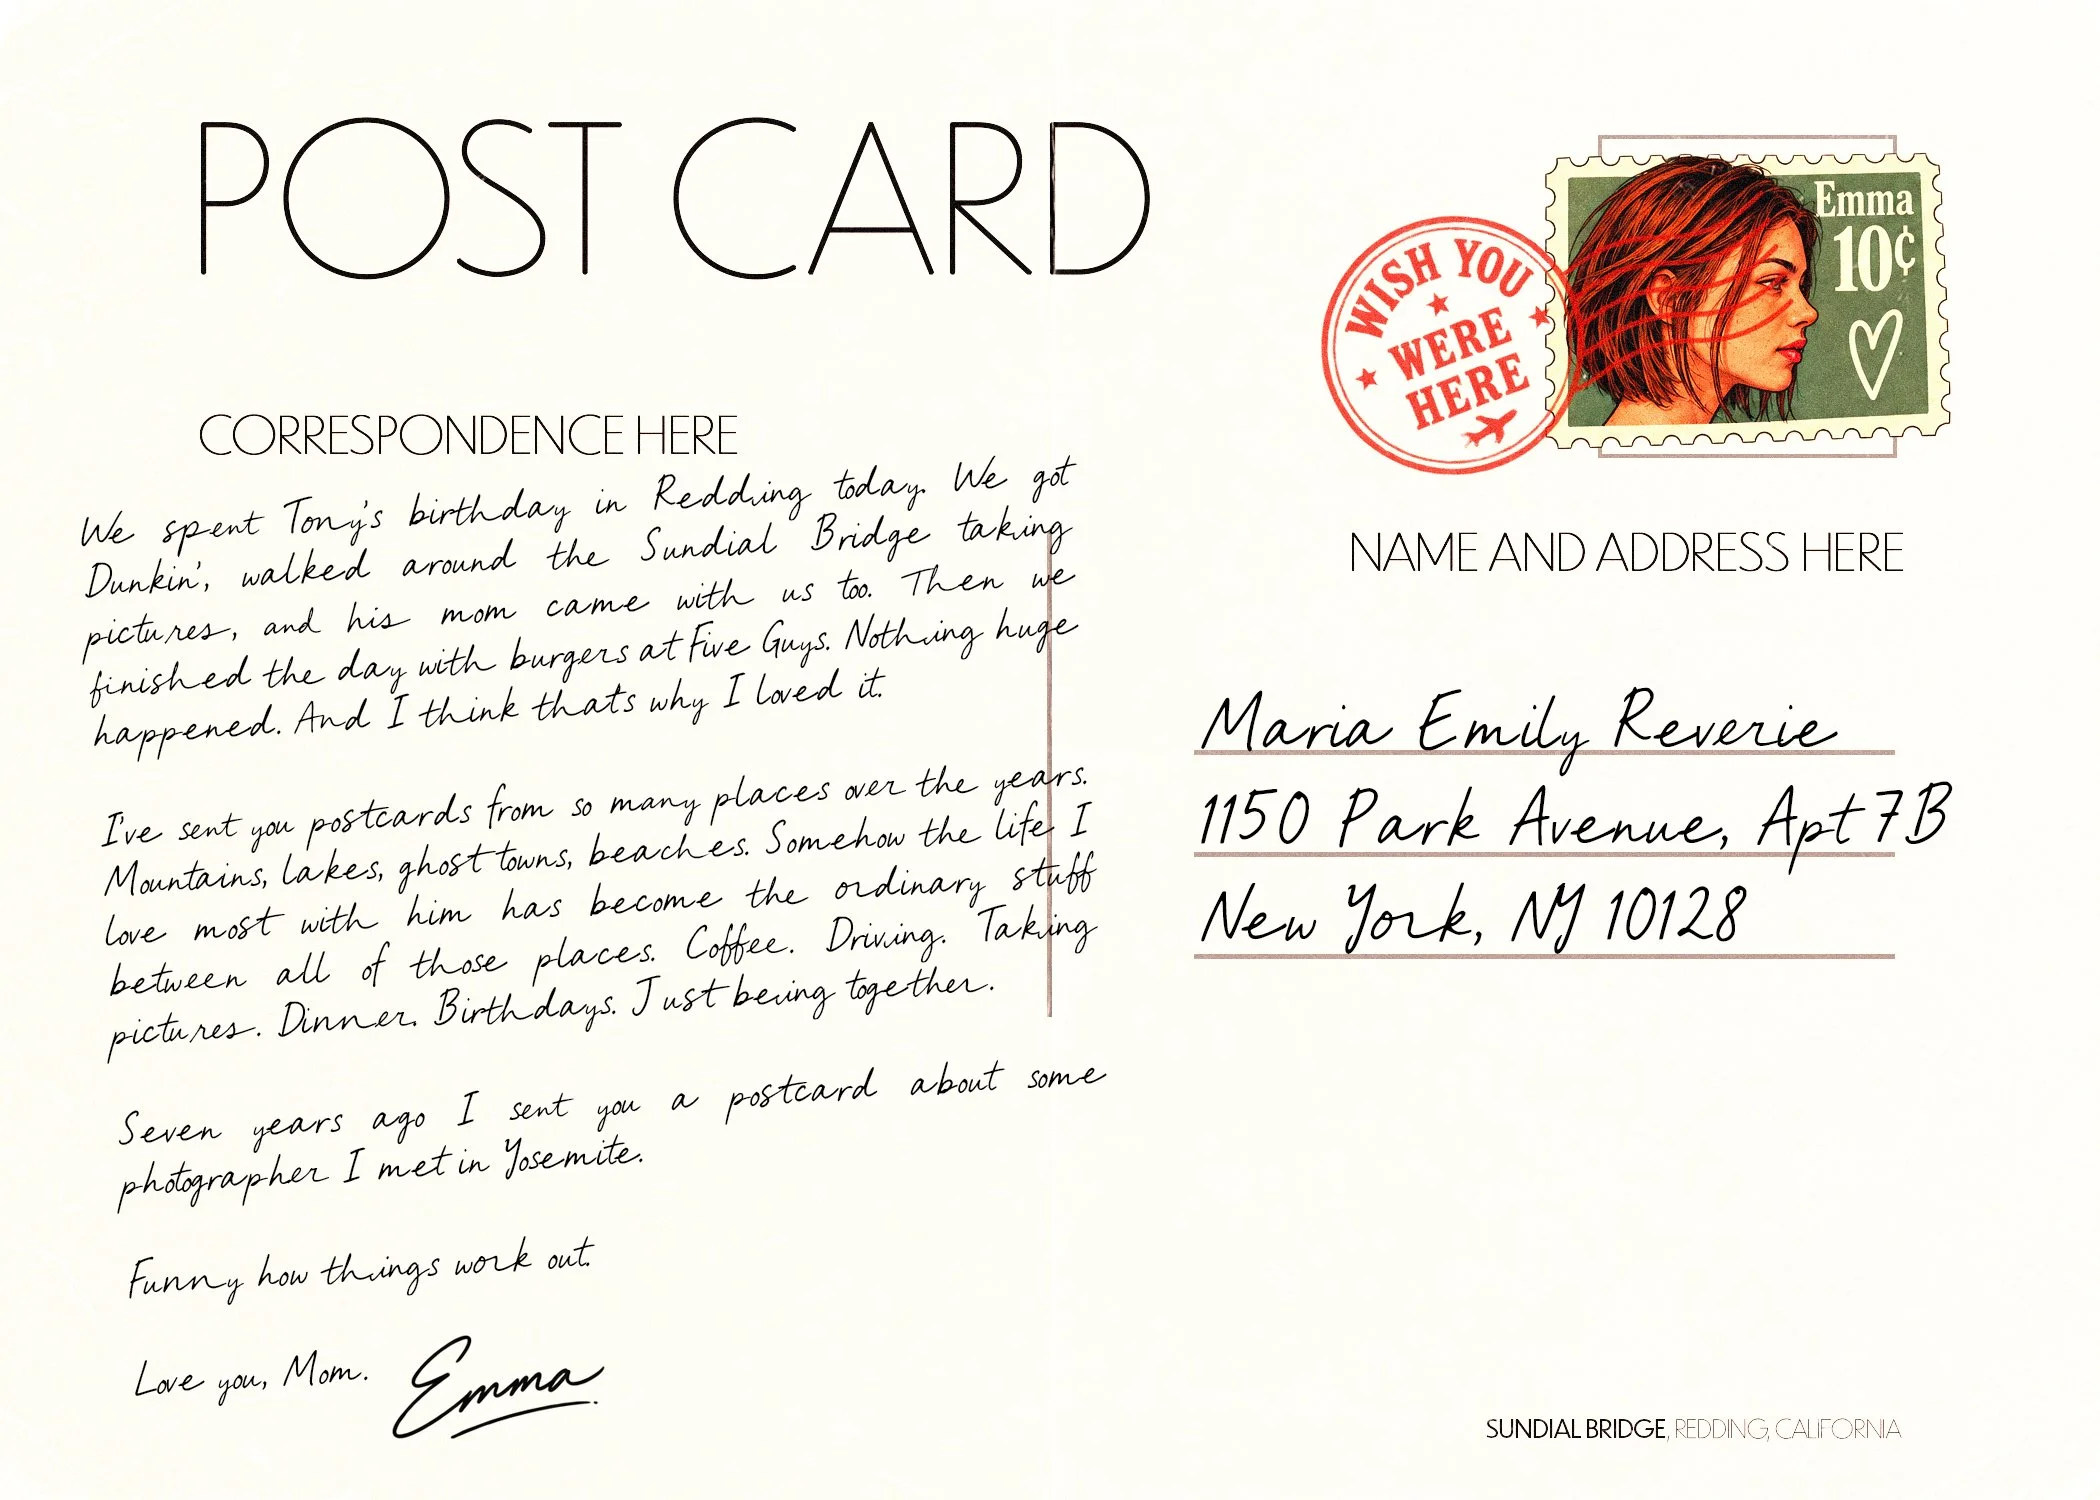 POST CARD
CORRESPONDENCE HERE
We spent Tony's birthday in Redding today. We got
Dunkin', walked around the Sundial Bridge taking
pictures, and his mom came with us too. Then we
finished the day with burgers at Five Guys. Nothing huge
happened. And I think that's why I loved it.
I've sent you postcards from so many places over the years.
Mountains, lakes, ghost towns, beaches. Somehow the life I
love most with him has become the ordinary stuff
between all of those places. Coffee. Driving. Taking
pictures. Dinner. Birthdays. Just being together.
Seven years ago I sent you a postcard about some
photographer I met in Yosemite.
Funny how things work out.
Love you, Mom.
Emma
WISH YOU
WERE
HERE
Emma
10¢
NAME AND ADDRESS HERE
Maria Emily Reverie
1150 Park Avenue, Apt 7B
New York, NY 10128
SUNDIAL BRIDGE, REDDING, CALIFORNIA